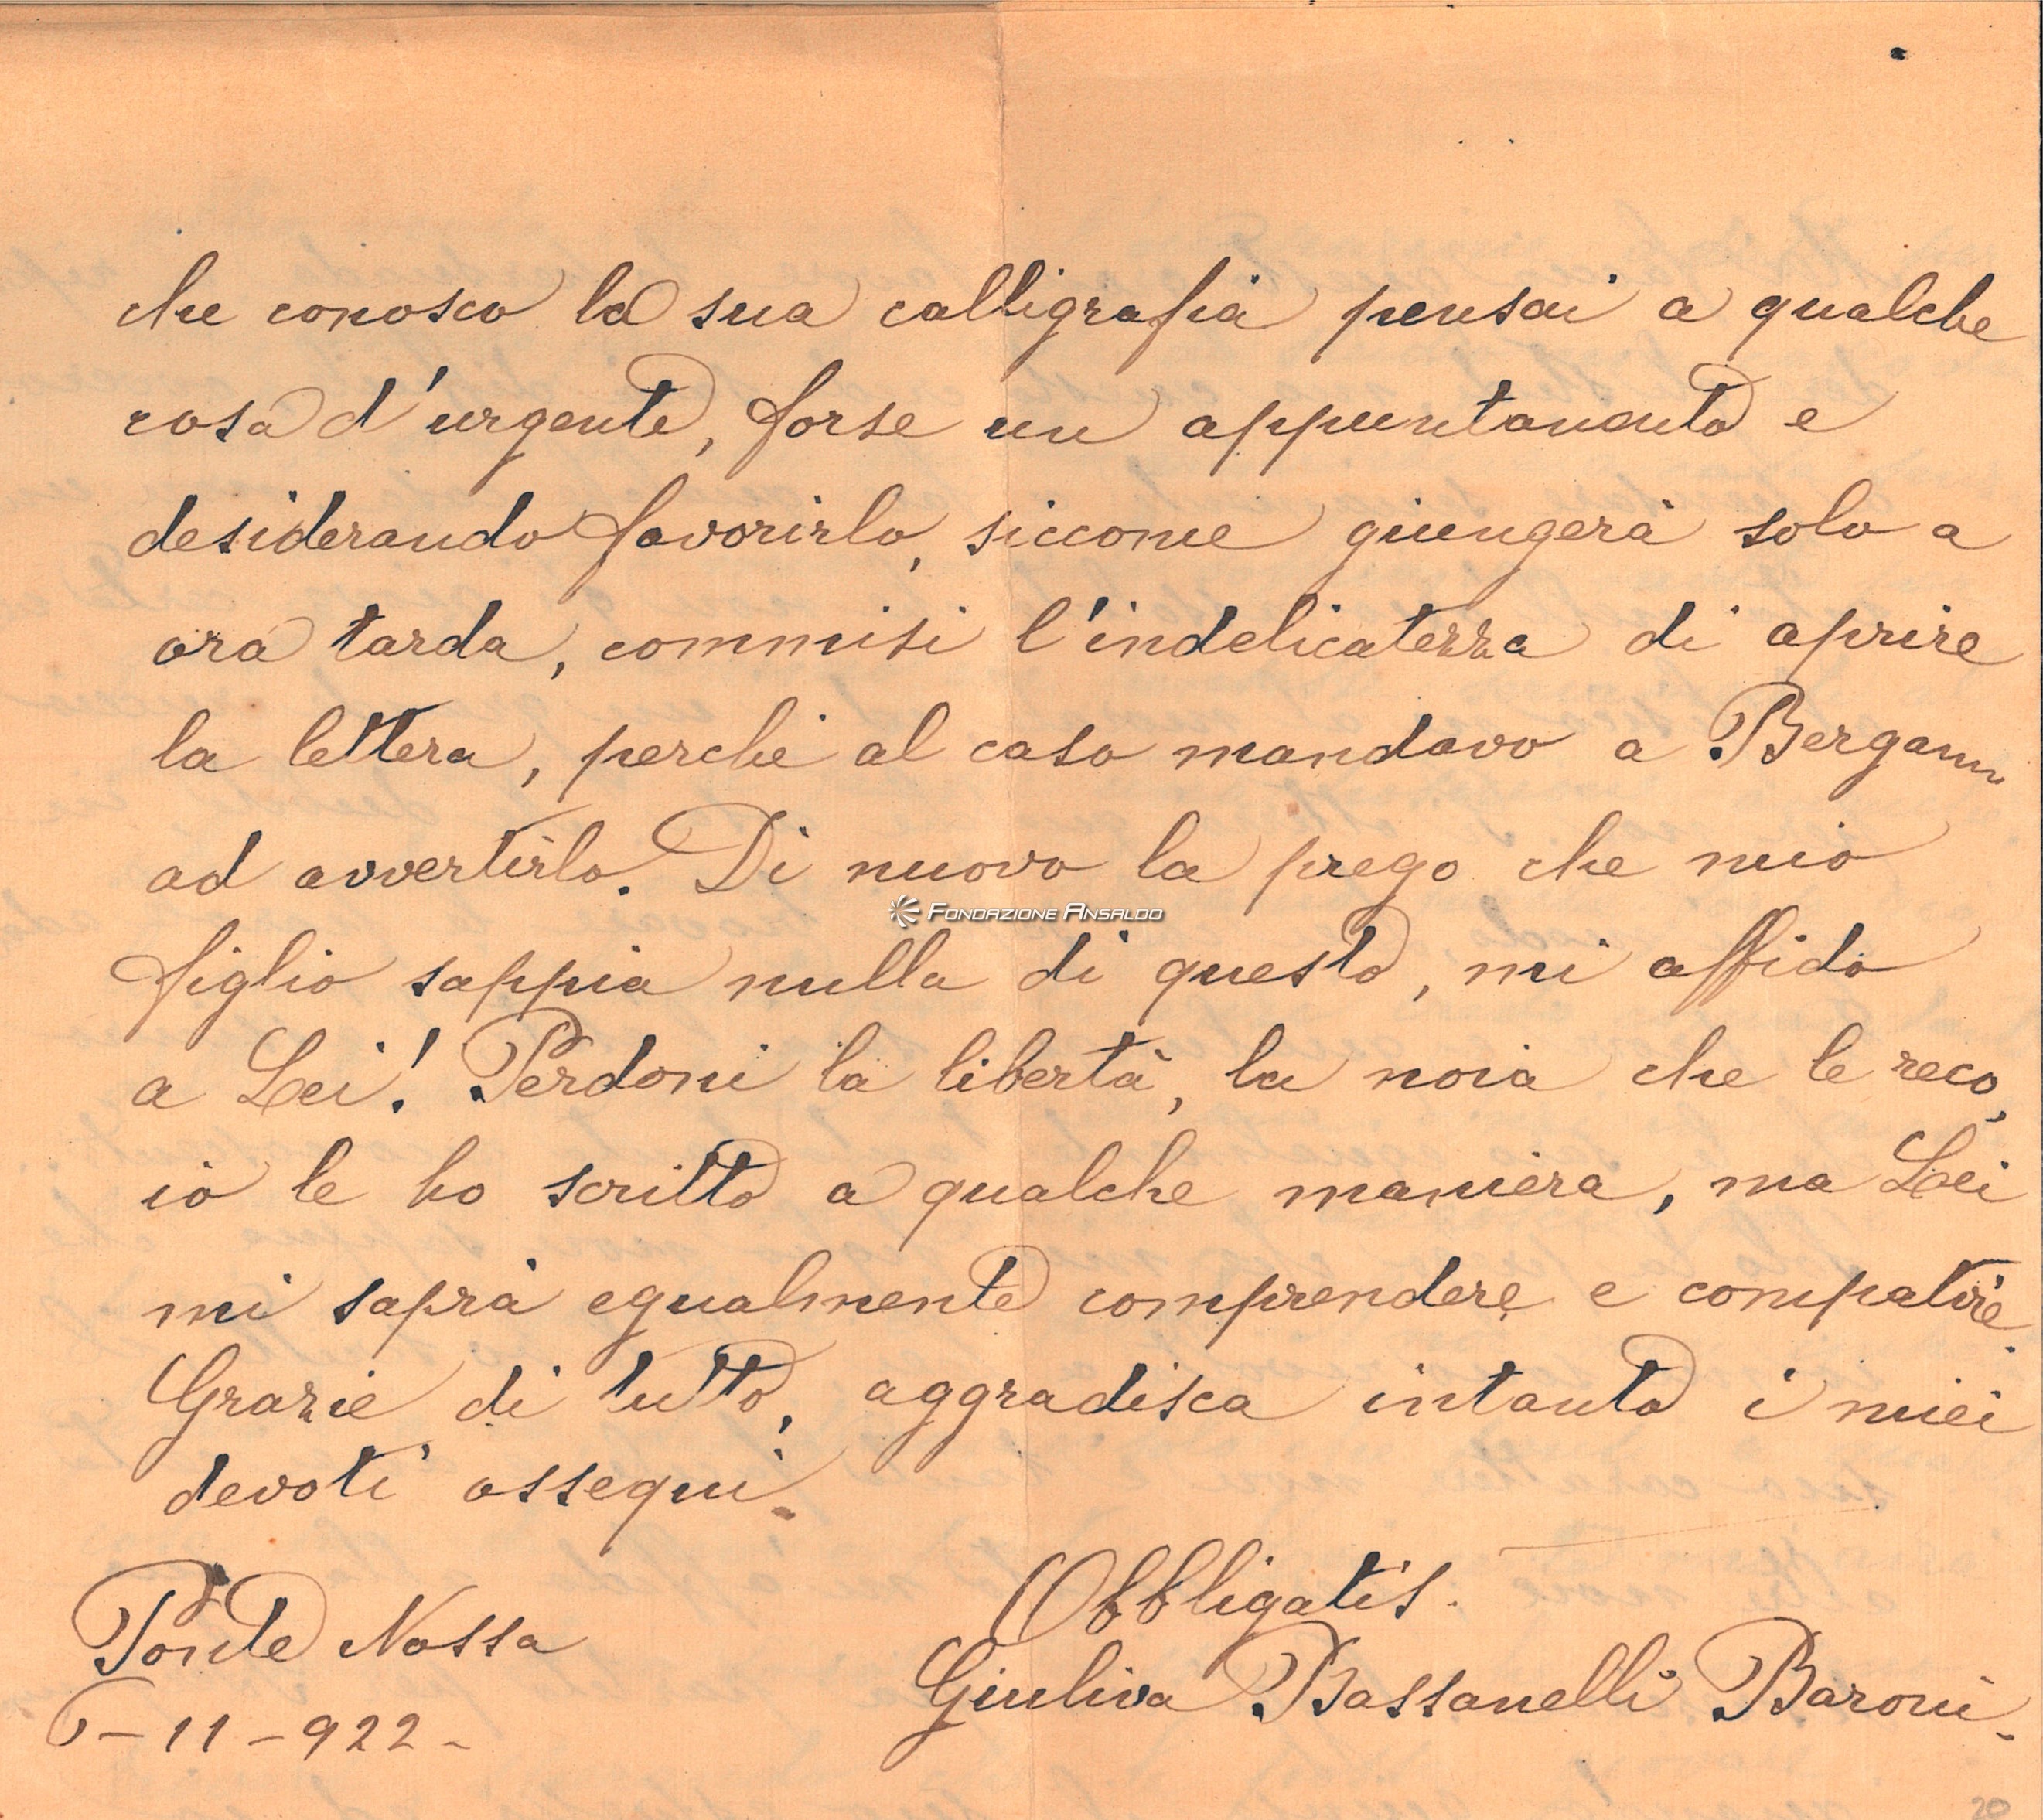 che conosco la sua calligrafia pensai a qualche
cosa d'urgente, forse un appuntamento e
desiderando favorirlo, siccome giungerà solo a
ora tarda, commisi l'indelicatezza di aprire
la lettera, perchè al caso mandavo a Bergamo
ad avvertirlo. Di nuovo la prego che mio
FONDAZIONE ANSALDO
figlio sappia nulla di questo, mi affido
a Lei! Perdoni la libertà, la noia che le reco,
io le ho scritto a qualche maniera, ma Lei
mi saprà egualmente comprendere e compatire.
Grazie di tutto, aggradisca intanto i miei
devoti ossequi.
Obbligatis.
Ponte Nossa
Giuliva Bassanelli Baroni.
6-11-922-
20